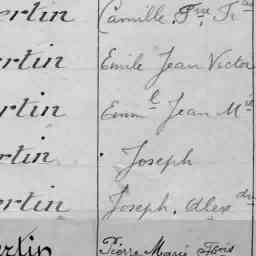 ertin Camille, Fre Fr
ertin Emile Jean Victor
ertin Emm l Jean Mie
ertin Joseph
ertin Joseph, Alex dre
ertin Pierre Marie Fois